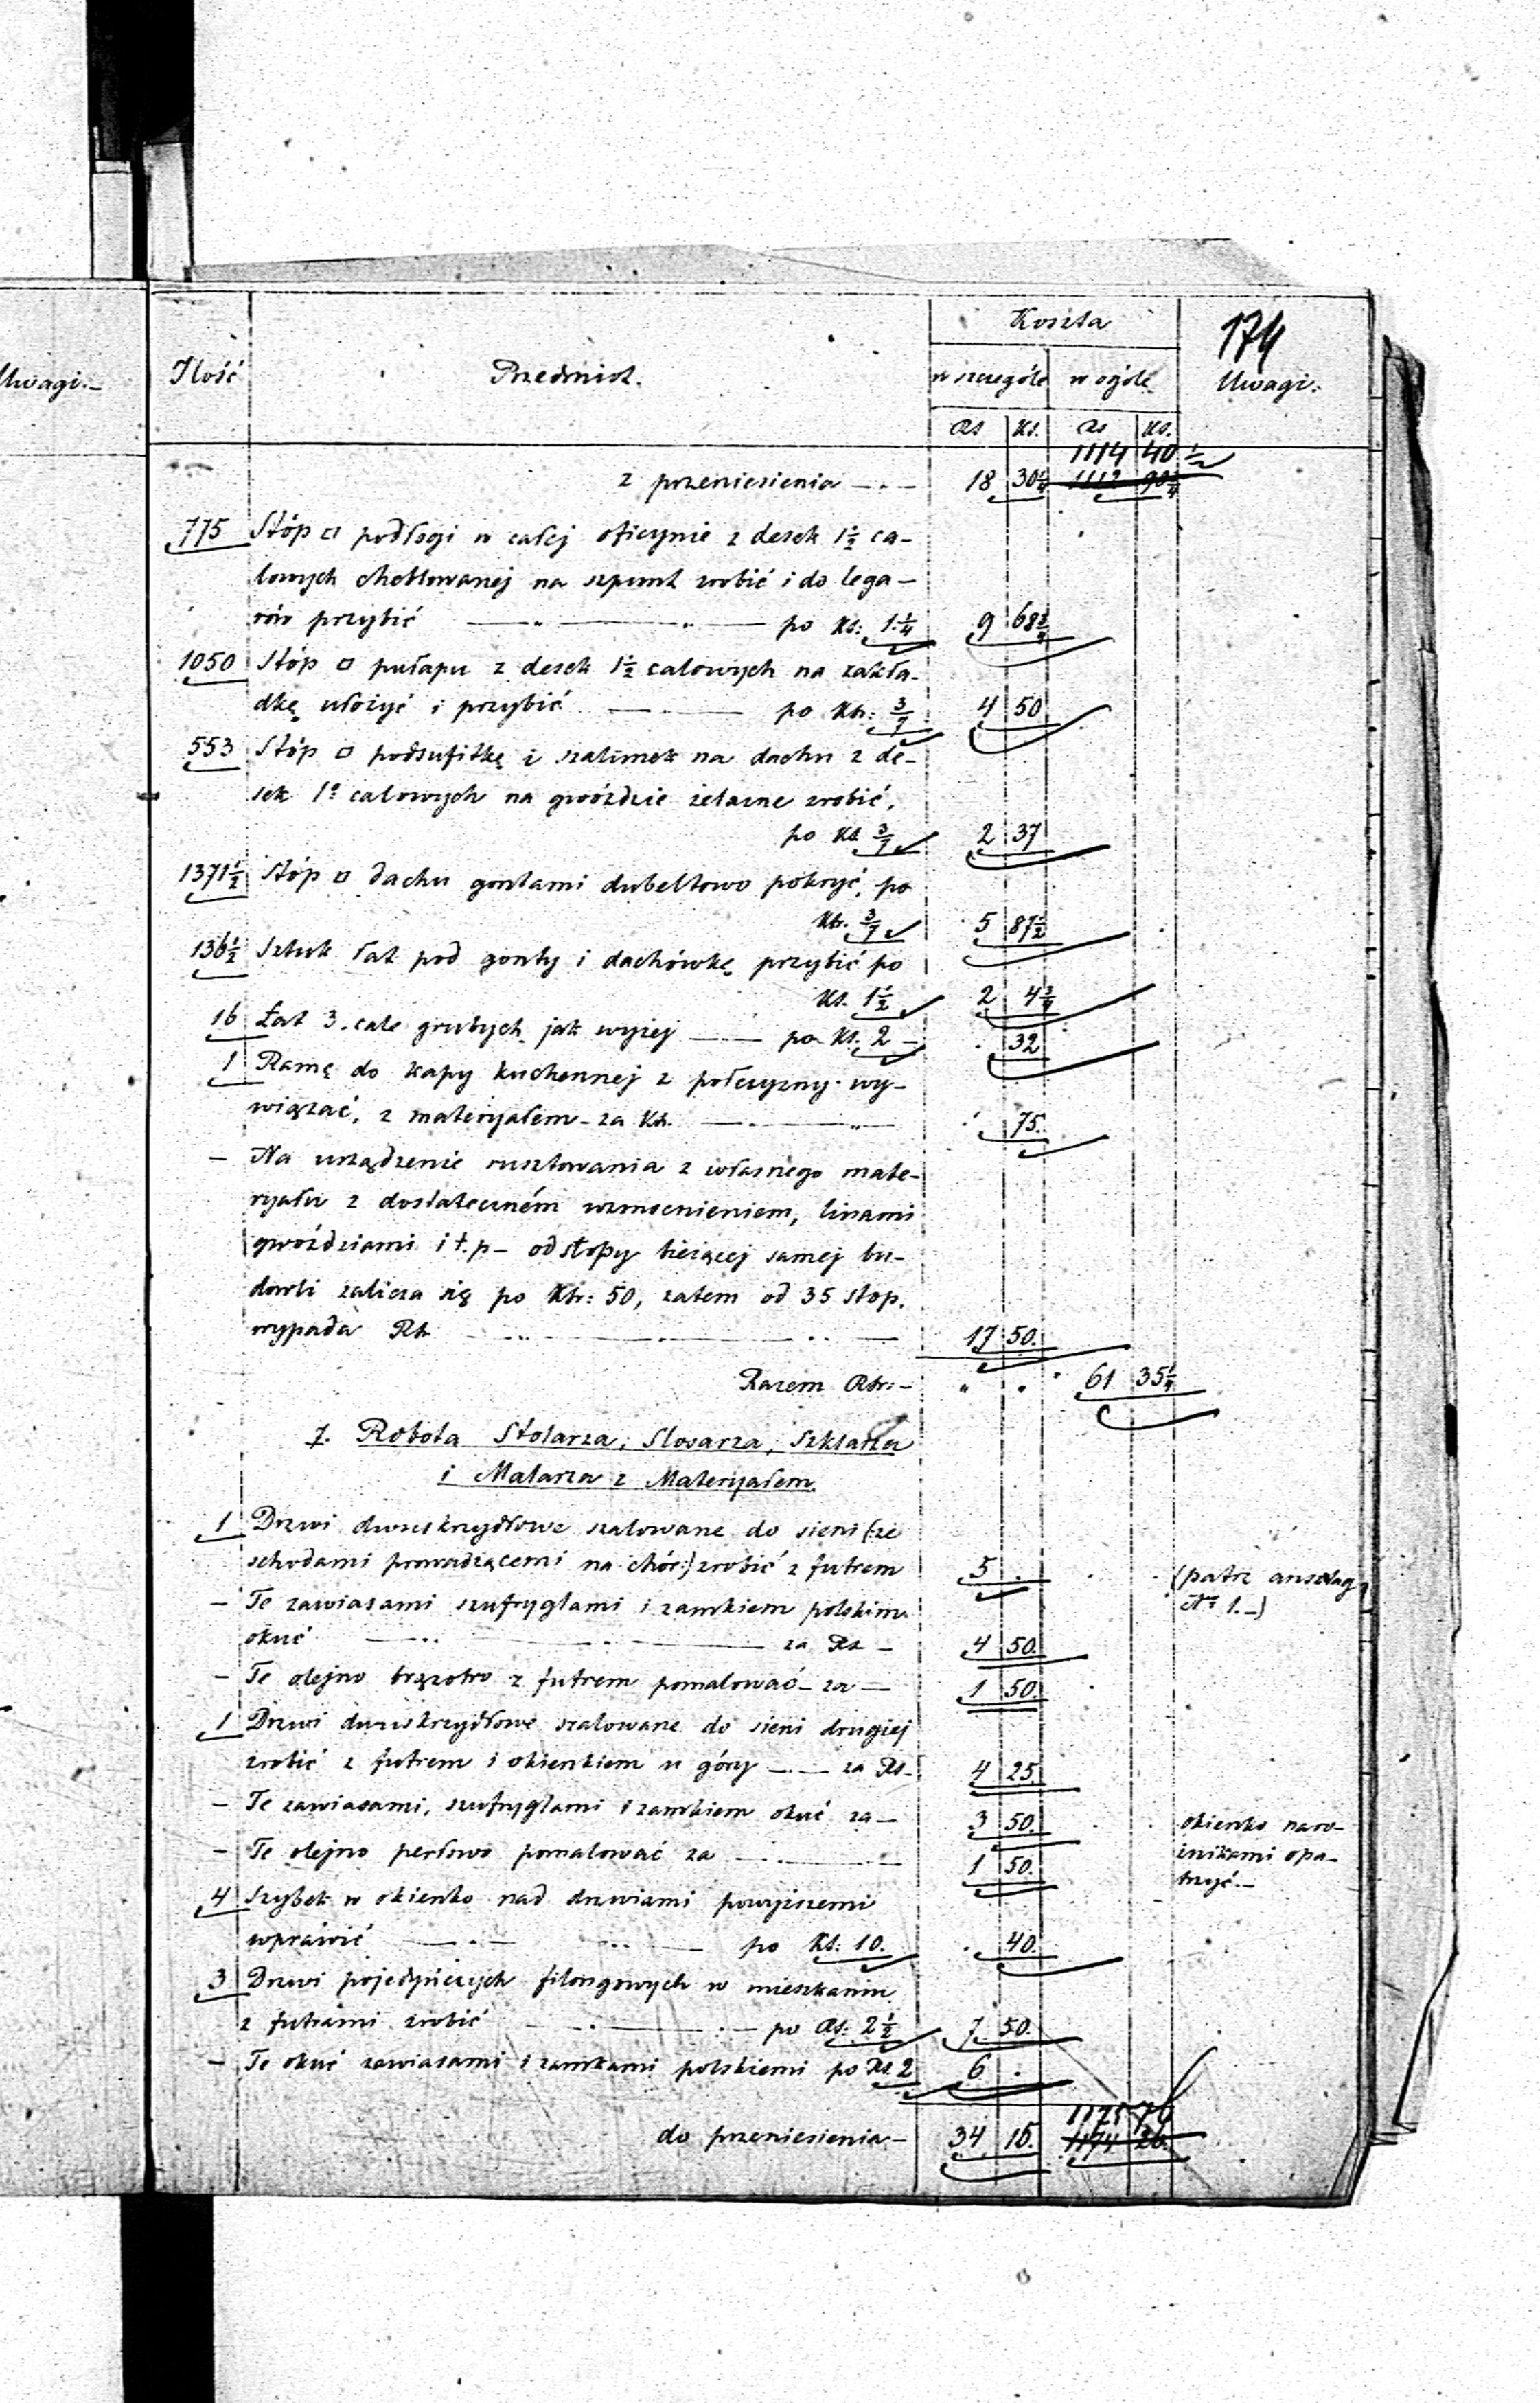 Uwagi.—
174
Ilość
Przedmiot.
Koszta
w szczególe
w ogóle
Uwagi:
Rs
Ks.
Rs
Ks.
1114 40 1/2
z przeniesienia — . — 18 30 1/4 1112 90 3/4
775 Stóp □ podłogi w całej oficynie z desek 1 1/2 ca-
lowych cheblowanej na szpunt zrobić i do lega-
rów przybić — „ — „ — po Ks: 1 1/4 9 68 3/4
1050 Stóp □ pułapu z desek 1 1/2 calowych na zakła-
dkę ułożyć i przybić — . — po Ks: 3/7 4 50
553 Stóp □ podsufitkę i szalunek na dachu z de-
sek 1° calowych na gwoździe żelazne zrobić,
po Ks 3/7 2 37
1371 1/2 Stóp □ dachu gontami dubeltowo pokryć, po
Ks. 3/7 5 87 1/2
136 1/2 Sztuk łat pod gonty i dachówkę przybić po
Ks. 1 1/2 2 4 3/4
16 Łat 3. cale grubych jak wyżej — po Ks. 2 — . 32
1 Ramę do kapy kuchennej z połczyzny wy-
wiązać, z materyałem - za Ks. — . — „ — 75.
— Na urządzenie rusztowania z własnego mate-
ryału z dostateczném wzmocnieniem, linami
gwoździami i t. p — od stopy bieżącej samej bu-
dowli zalicza się po Ks: 50, zatem od 35 stop.
wypada Rs — .. — .. — 17 50.
Razem Rs: — „ . 61 35 1/4
7. Robota Stolarza, Slosarza, Szklarza
i Malarza z Materyałem.
1 Drzwi dwuskrzydłowe szalowane do sieni (:ze
schodami prowadzącemi na chór:) zrobić z futrem 5 . (patrz anszlag
№ 1.—)
— Te zawiasami szufryglami i zamkiem polskim
okuć — .. — . — za Rs — 4 50.
— Te olejno brązowo z futrem pomalować — za — 1 50.
1 Drzwi dwuskrzydłowe szalowane do sieni drugiej
zrobić z futrem i okienkiem u góry — . — za Rs — 4 25.
— Te zawiasami, szufryglami i zamkiem okuć za — 3 50. okienko naro-
żnikami opa-
trzyć.—
— Te olejno perłowo pomalować za — . — 1 50.
4 Szybek w okienko nad drzwiami powyższemi
wprawić — . — .. — po Ks: 10. . 40.
3 Drzwi pojedyńczych filongowych w mieszkaniu
z futrami zrobić — . — : — po Rs: 2 1/2 7 50.
— Te okuć zawiasami i zamkami polskiemi po Rs 2 6 .
1175 76
do przeniesienia — 34 15. 1174 26.